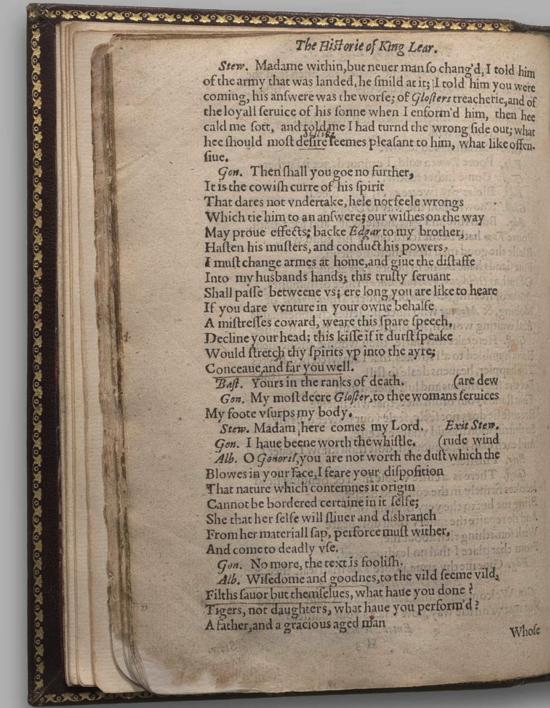 The Historie of King Lear.
Stew. Madame within, but neuer man so chang'd, I told him
of the army that was landed, he smild at it; I told him you were
coming, his answere was the worse; of Glosters treacherie, and of
the loyall seruice of his sonne when I enform'd him, then hee
cald me sott, and told me I had turnd the wrong side out; what
hee should most desire seemes pleasant to him, what like offen-
siue.
Gon. Then shall you goe no further,
It is the cowish curre of his spirit
That dares not vndertake, hele not feele wrongs
Which tie him to an answere; our wishes on the way
May proue effects; backe Edgar to my brother,
Hasten his musters, and conduct his powers,
I must change armes at home, and giue the distaffe
Into my husbands hands; this trusty seruant
Shall passe betweene vs; ere long you are like to heare
If you dare venture in your owne behalfe
A mistresses coward, weare this spare speech,
Decline your head; this kisse if it durst speake
Would stretch thy spirits vp into the ayre;
Conceaue and far you well.
Bast. Yours in the ranks of death. (are dew
Gon. My most deere Gloster, to thee womans seruices
My foote vsurps my body.
Stew. Madam, here comes my Lord. Exit Stew.
Gon. I haue beene worth the whistle. (rude wind
Alb. O Gonoril, you are not worth the dust which the
Blowes in your face, I feare your disposition
That nature which contemnes it origin
Cannot be bordered certaine in it selfe;
She that her selfe will sliuer and disbranch
From her materiall sap, perforce must wither,
And come to deadly vse.
Gon. No more, the text is foolish.
Alb. Wisedome and goodnes, to the vild seeme vild,
Filths sauor but themselues, what haue you done?
Tigers, not daughters, what haue you perform'd?
A father, and a gracious aged man
Whose